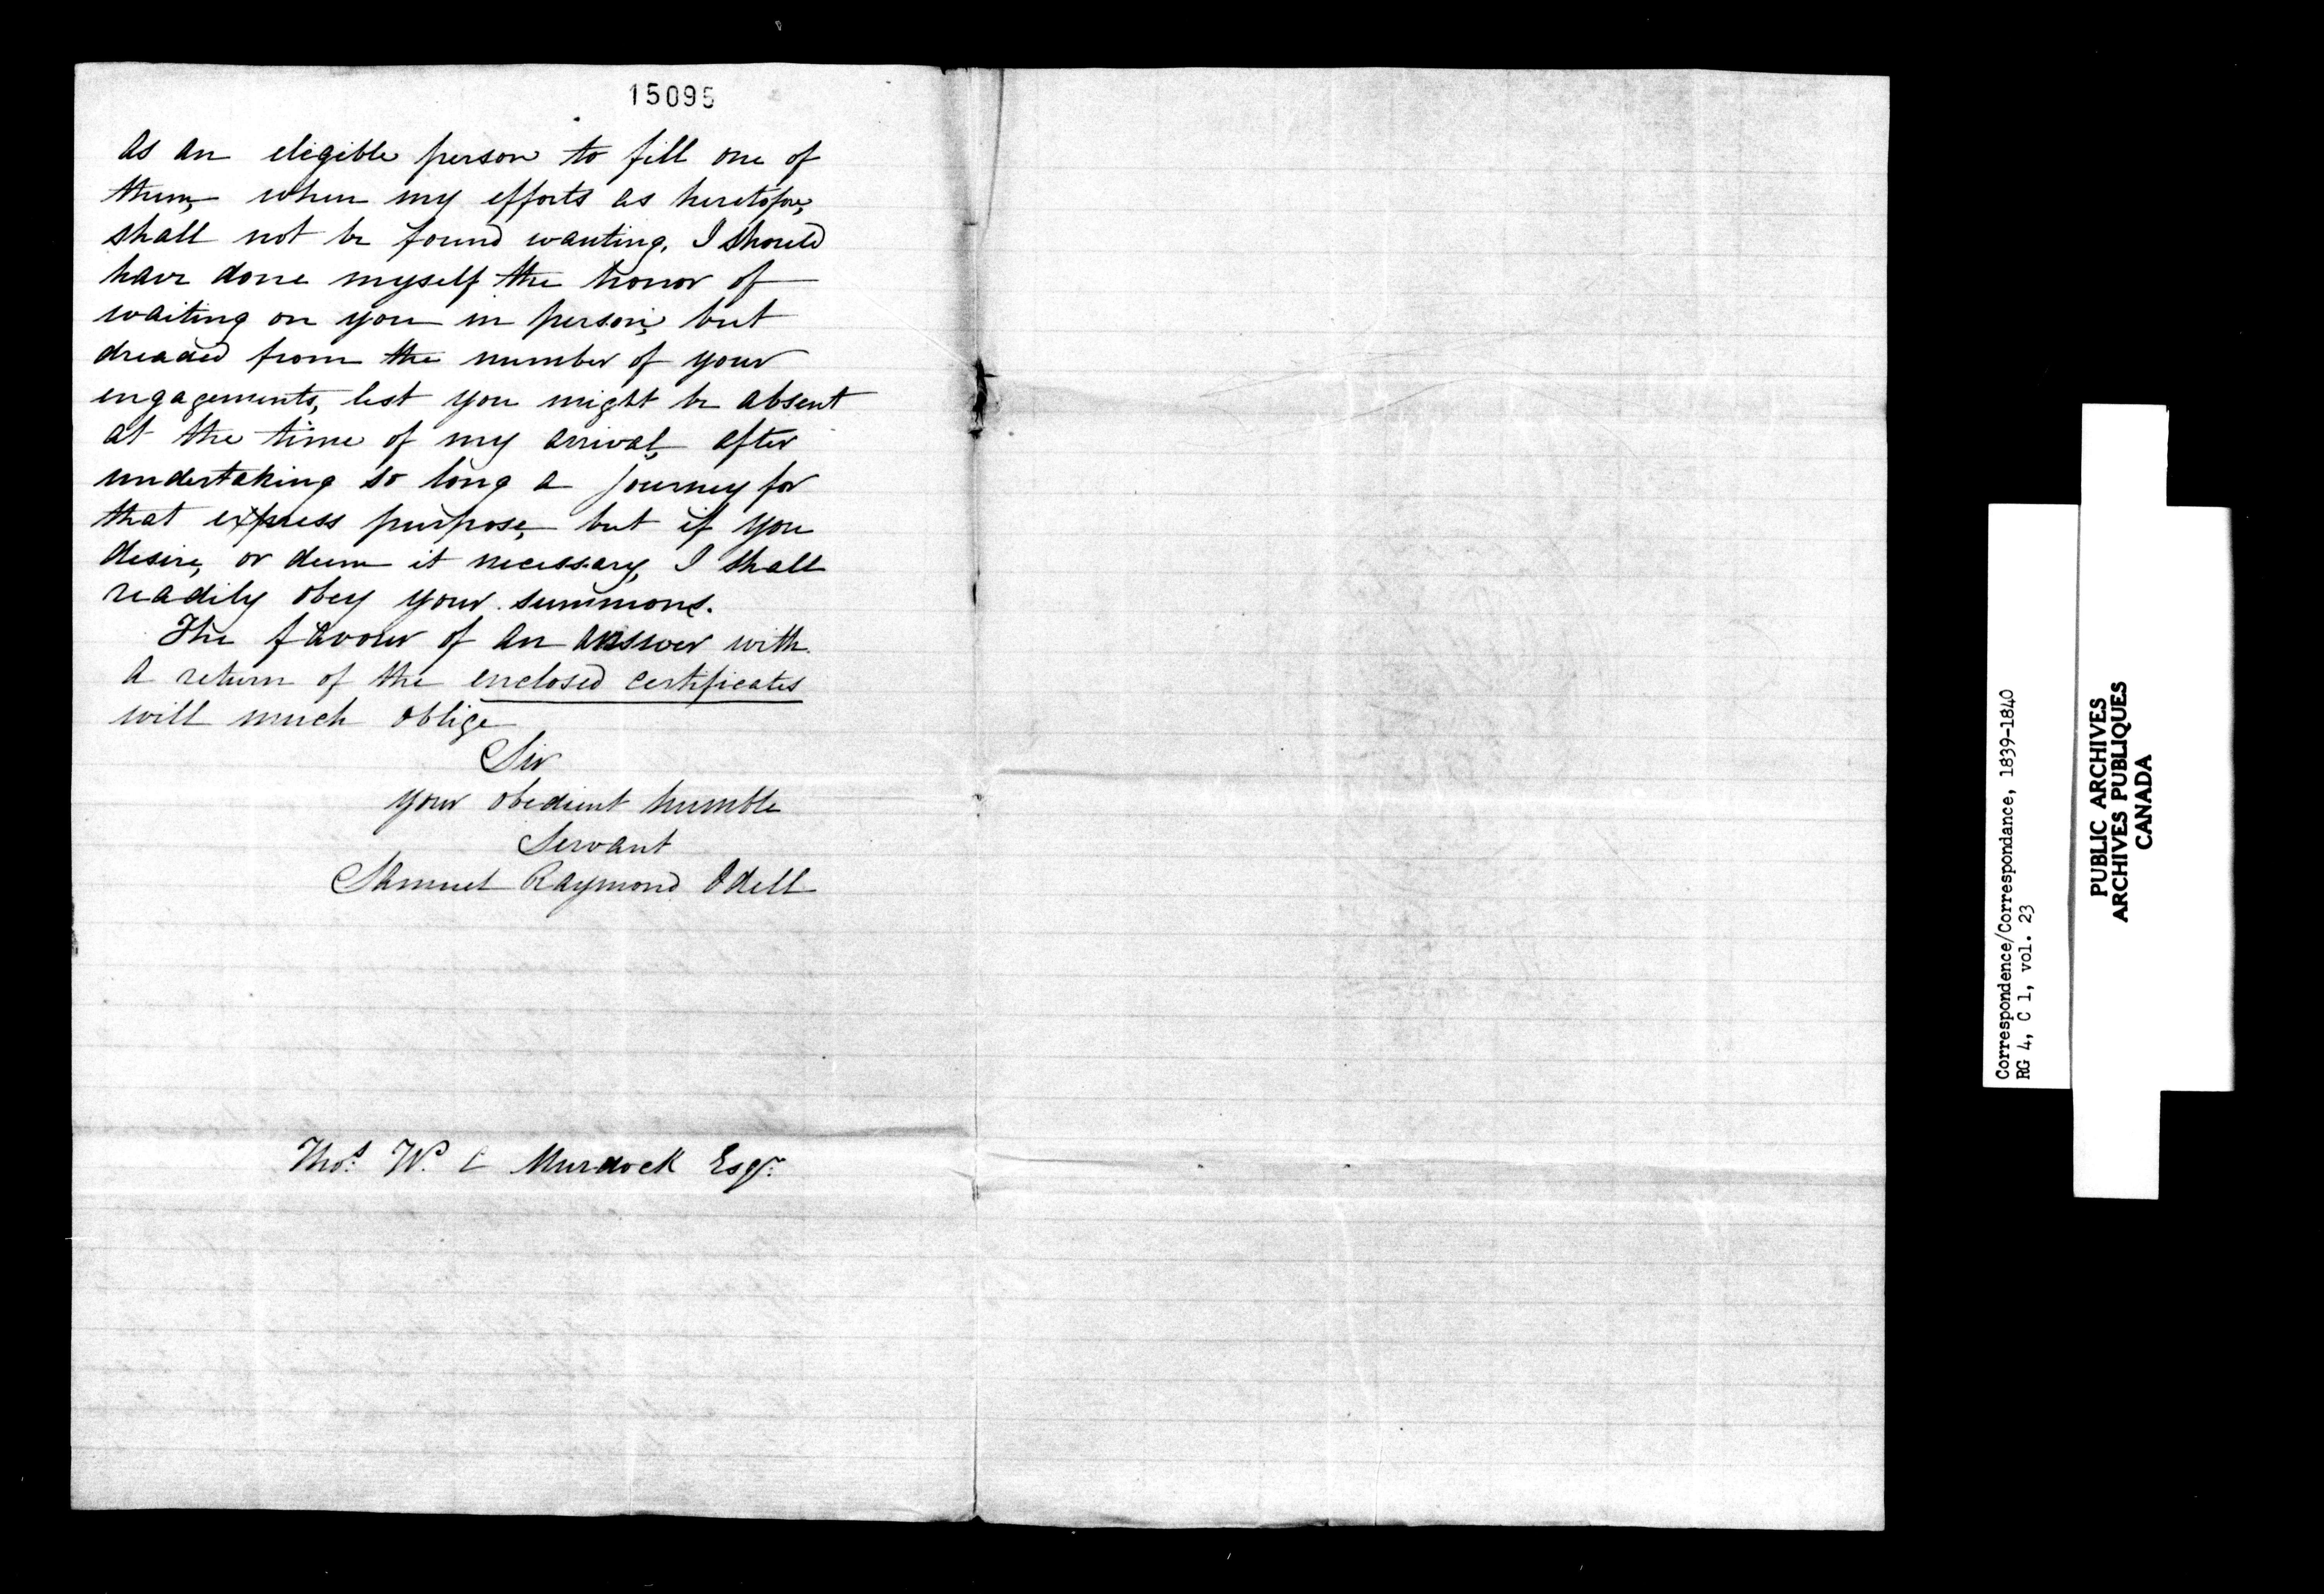 15095
as an eligible person to fill one of
them, when my efforts as heretofore,
shall not be found wanting. I should
have done myself the honor of
waiting on you in person, but
dreaded from the number of your
engagements, lest you might be absent
at the time of my arrival, after
undertaking so long a journey for
that express purpose, but if you
desire, or deem it necessary, I shall
readily obey your summons.
The favour of an answer with
a return of the enclosed certificates
will much oblige
Sir
your obedient humble
Servant
Samuel Raymond Odell
Thos. W. C Murdock Esqr.
Correspondence/Correspondance, 1839-1840
RG 4, C 1, vol. 23
PUBLIC ARCHIVES
ARCHIVES PUBLIQUES
CANADA